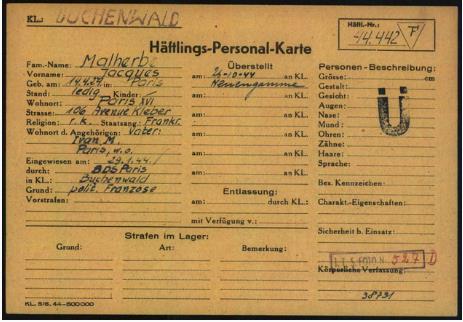 KL: BUCHENWALD
Häftl.-Nr.:
44.442 F
Häftlings-Personal-Karte
Fam.-Name: Malherbe
Vorname: Jacques
Geb. am 14.4.24 in: Paris
Stand: ledig Kinder: /
Wohnort: Paris XVI
Strasse: 106 Avenue Kleber
Religion: r.k. Staatsang.: Frankr.
Wohnort d. Angehörigen: Vater:
Ivan M.
Paris, w.o.
Eingewiesen am: 29.1.44
durch: BDS Paris
in KL.: Buchenwald
Grund: polit. Franzose
Vorstrafen:
Überstellt
am: 24-10-44 an KL.
Neuengamme
am: an KL.
am: an KL.
am: an KL.
am: an KL.
am: an KL.
Entlassung:
am: durch KL.:
mit Verfügung v.:
Personen-Beschreibung:
Grösse: cm
Gestalt:
Gesicht:
Augen:
Nase:
Mund:
Ohren:
Zähne:
Haare:
Sprache:
Ü
Bes. Kennzeichen:
Charakt.-Eigenschaften:
Sicherheit b. Einsatz:
I.T.S. FOTO N. 527 D
Körperliche Verfassung:
38731
Strafen im Lager:
Grund: Art: Bemerkung:
KL. 5/6. 44-500000